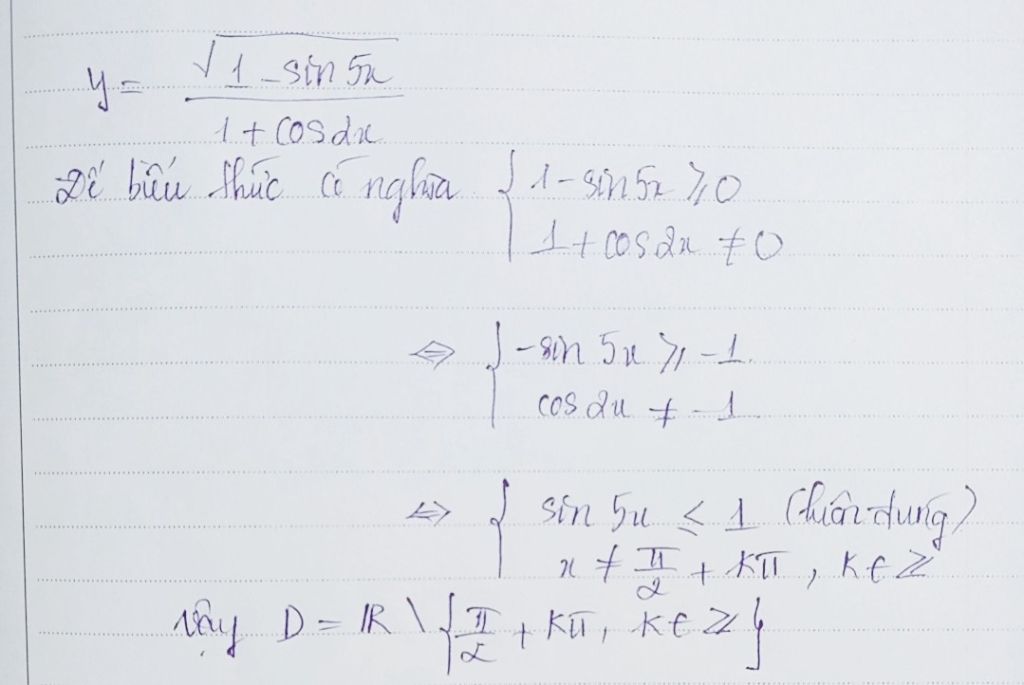 y = √(1 - sin 5x) / (1 + cos 2x)
Để biểu thức có nghĩa { 1 - sin 5x ≥ 0
1 + cos 2x ≠ 0
⇔ { -sin 5x ≥ -1
cos 2x ≠ -1
⇔ { sin 5x ≤ 1 (luôn đúng)
x ≠ π/2 + kπ, k ∈ ℤ
Vậy D = ℝ \ { π/2 + kπ, k ∈ ℤ }